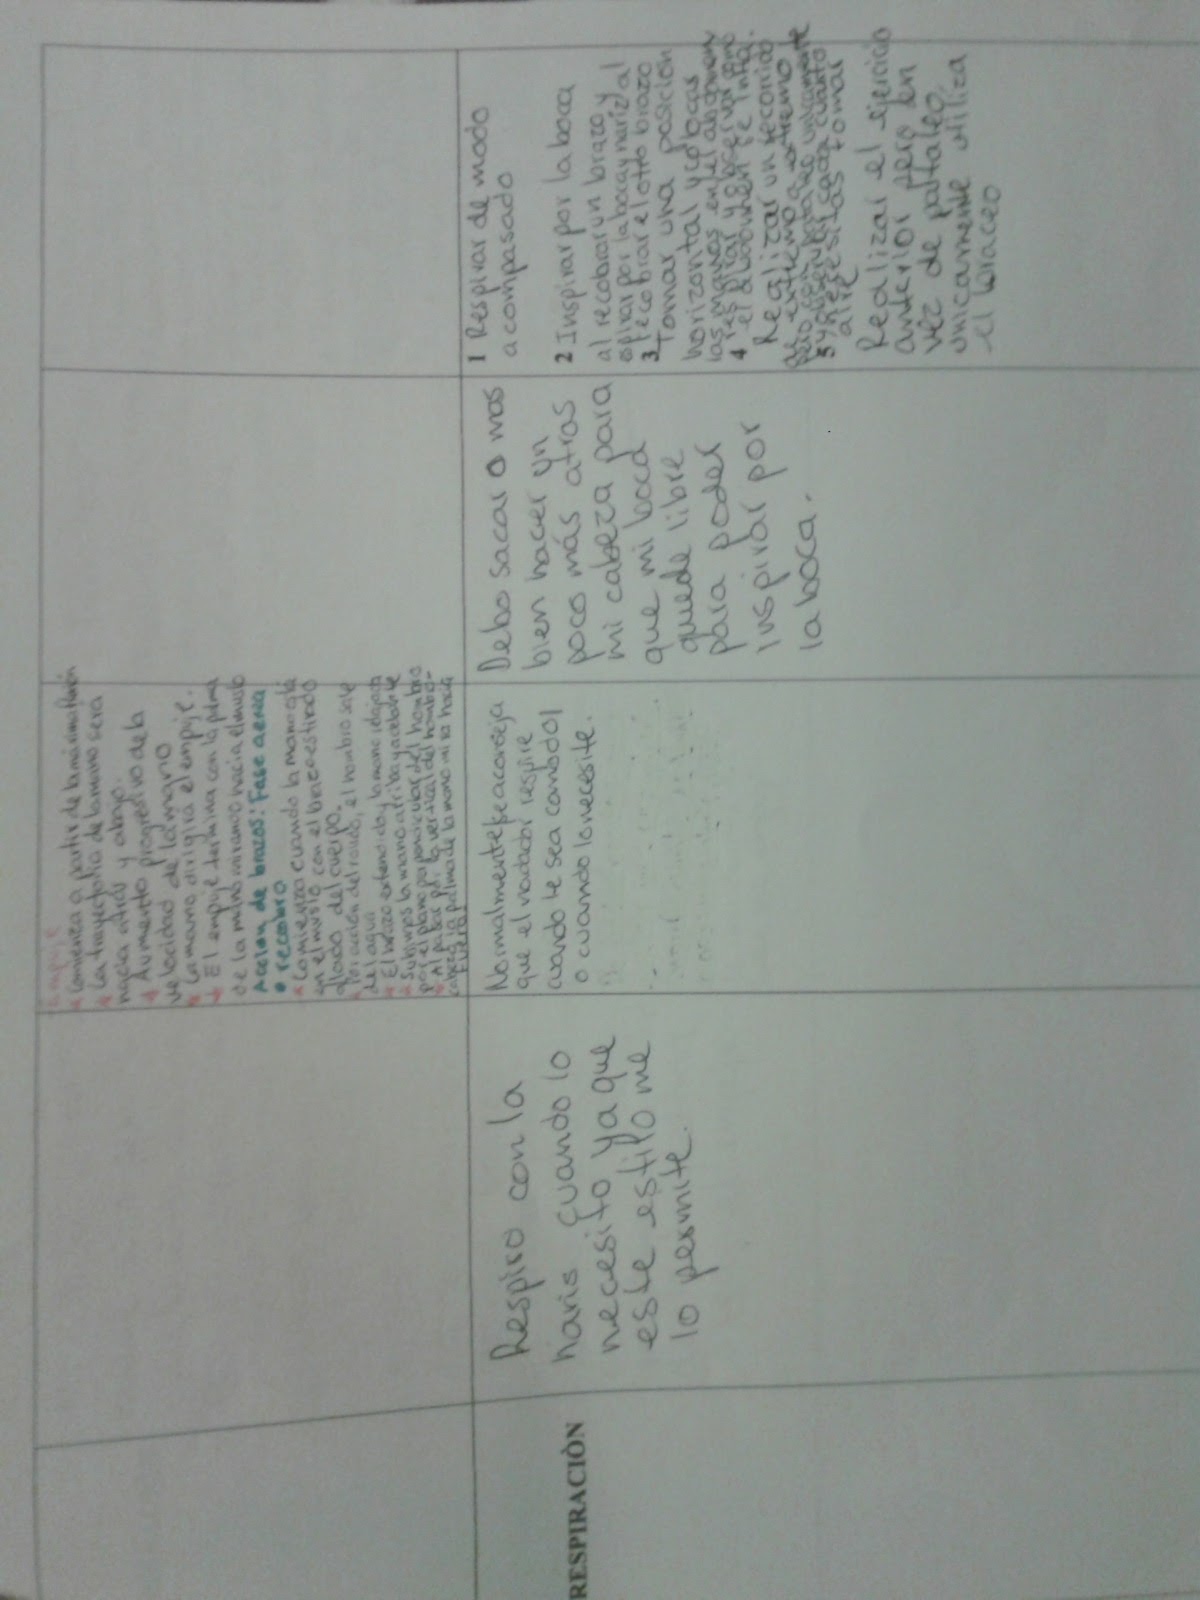 Empuje
* Comienza a partir de la máxima flexión
* La trayectoria de la mano será
hacia atrás y abajo.
* Aumento progresivo de la
velocidad de la mano
* La mano dirigirá el empuje.
* El empuje termina con la palma
de la mano miramos hacia el muslo
Acción de brazos: Fase aérea
o recobro
* Comienza cuando la mano está
en el muslo con el brazo estirado
al lado del cuerpo.
* Por acción del roulido, el hombro sale
del agua
* El brazo extendido y la mano relajada
* Subimos la mano arriba y adelante
por el plano perpendicular del hombro
* Al pasar por la vertical del hombro-
cabeza la palma de la mano mira hacia
fuera.
RESPIRACIÒN
Respiro con la
naris cuando lo
necesito ya que
este estilo me
lo permite.
Normalmente se aconseja
que el nadador respire
cuando le sea comodo
o cuando lo necesite.
Debo sacar o mas
bien hacer un
poco más atras
mi cabeza para
que mi boca
quede libre
para poder
inspirar por
la boca.
1 Respirar de modo
acompasado
2 Inspirar por la boca
al recobrar un brazo y
espirar por la boca y nariz al
recobrar el otro brazo
3 Tomar una posición
horizontal y colocas
las manos en el abdomen y
4 respirar y observar como
el abdomen se infla.
Realizar un recorrido
de extremo a extremo
pero con pataleo unicamente
5 y observar cada cuanto
necesitas tomar
aire
Realizar el ejercicio
anterior pero en
vez de pataleo,
unicamente utiliza
el braceo